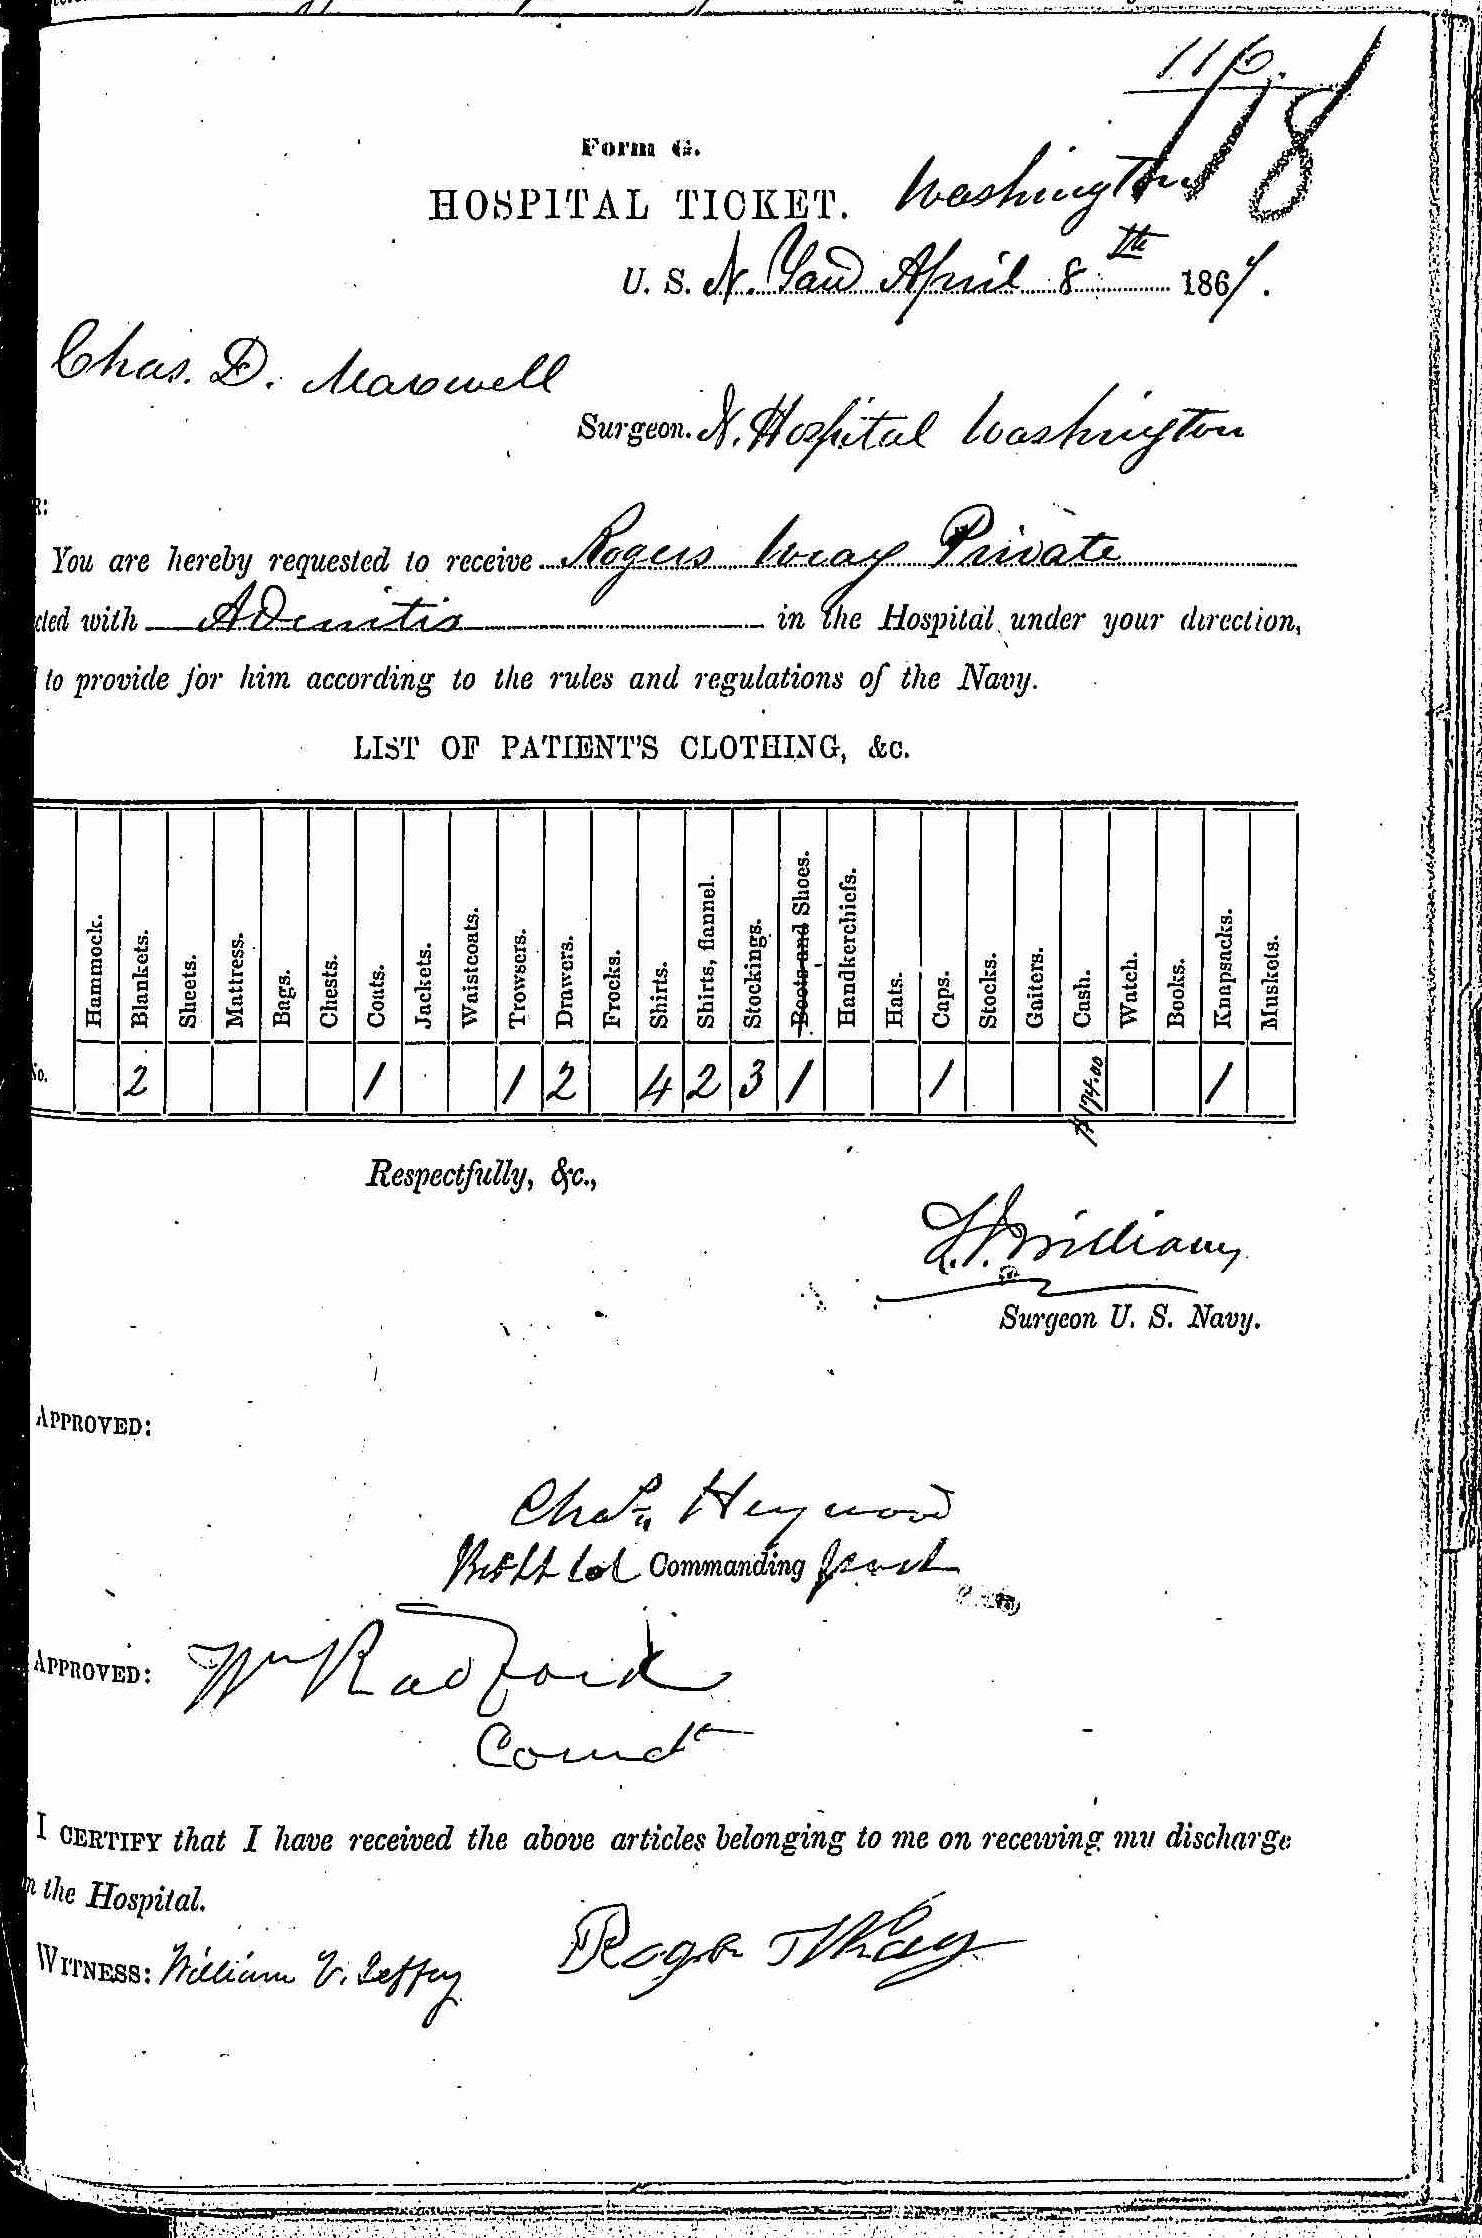 116.
18
Form G.
HOSPITAL TICKET. Washington
U. S. N. Yard April 8th 1867.
Chas. D. Maxwell
Surgeon. N. Hospital Washington
R:
You are hereby requested to receive Rogers Wray Private
cted with Adenitis in the Hospital under your direction,
to provide for him according to the rules and regulations of the Navy.
LIST OF PATIENT'S CLOTHING, &c.
Hammock. Blankets. Sheets. Mattress. Bags. Chests. Coats. Jackets. Waistcoats. Trowsers. Drawers. Frocks. Shirts. Shirts, flannel. Stockings. Boots and Shoes. Handkerchiefs. Hats. Caps. Stocks. Gaiters. Cash. Watch. Books. Knapsacks. Muskets.
No. 2 1 1 2 4 2 3 1 1 $174.00 1
Respectfully, &c.,
Williams
Surgeon U. S. Navy.
APPROVED:
Chas. Heywood
Bvt Lt Col Commanding
APPROVED: Wm Radford
Comdt
I CERTIFY that I have received the above articles belonging to me on receiving my discharge
the Hospital.
WITNESS: William V. Jeffry Roger Wray